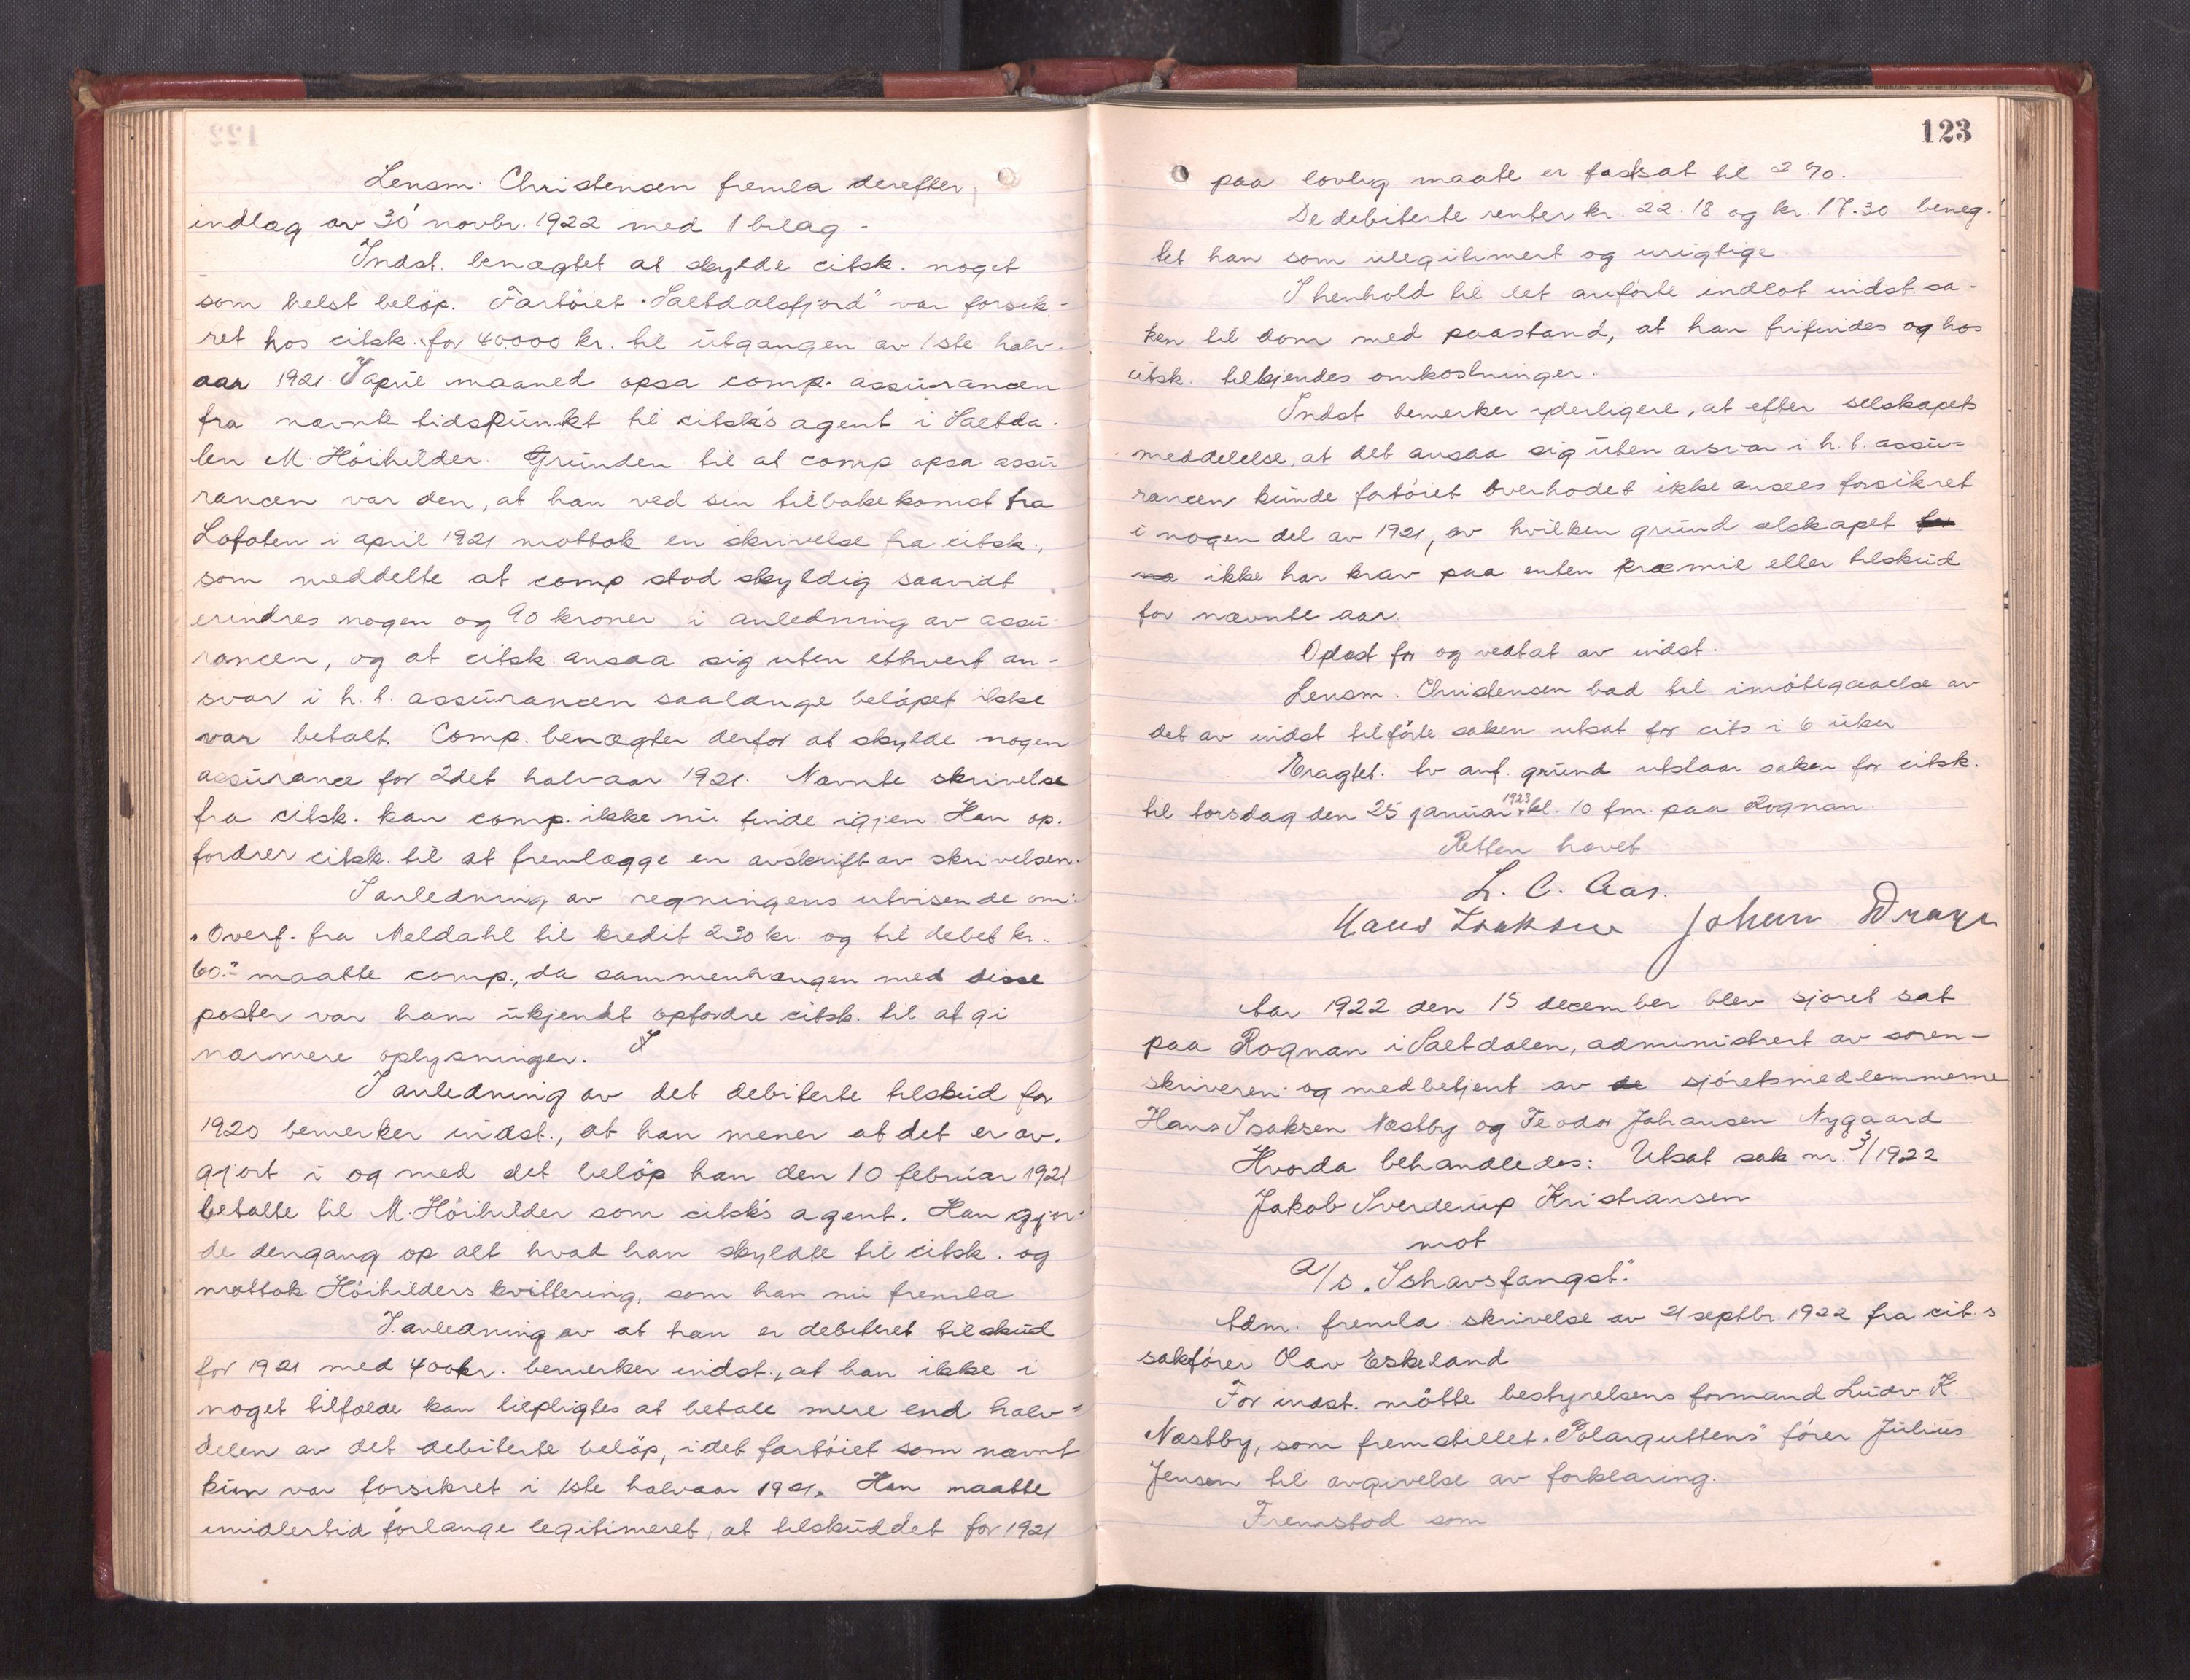 Lensm. Christensen fremla derefter
indlæg av 30' novbr. 1922 med 1 bilag. -
Indst. benægtet at skylde citsk. noget
som helst beløp. Fartöiet "Saltdalsfjord" var forsik-
ret hos citsk. for 40000 kr. til utgangen av 1ste halv-
aar 1921. I april maaned opsa comp. assürancen
fra nævnte tidspünkt til citsk's agent i Saltda-
len M. Höihilder. Gründen til at comp opsa assü
rancen var den, at han ved sin tilbakekomst fra
Lofoten i april 1921 mottok en skrivelse fra citsk.,
som meddelte at comp stod skyldig saavidt
erindres nogen og 90 kroner i anledning av assü-
rancen, og at citsk. ansaa sig uten ethvert an-
svar i h. t. assürancen saalænge beløpet ikke
var betalt. Comp. benægter derfor at skylde nogen
assürance for 2det halvaar 1921. Nævnte skrivelse
fra citsk. kan comp. ikke nü finde igjen. Han op-
fordrer citsk. til at fremlægge en avskrift av skrivelsen.
I anledning av regningens utvisende om:
"Overf. fra Meldahl til kredit 230 kr. og til debet kr.
60." maatte comp., da sammenhængen med disse
poster var ham ükjendt opfordre citsk. til at gi
nærmere oplysninger. I
I anledning av det debiterte tilsküd for
1920 bemerker indst., at han mener at det er av-
gjort i og med det beløp han den 10 febrüar 1921
betalte til M. Höihilder som citsk's agent. Han gjor-
de dengang op alt hvad han skyldte til citsk. og
mottok Höihilders kvittering, som han nü fremla
I anledning av at han er debiteret tilsküd
for 1921 med 400 kr. bemerker indst., at han ikke i
noget tilfælde kan tilpligtes at betale mere end halv-
delen av det debiterte beløp, idet fartöiet som nævnt
kün var forsikret i 1ste halvaar 1921. Han maatte
imidlertid forlange legitimeret, at tilsküddet for 1921
123
paa lovlig maate er fastsat til 2 %.
De debiterte renter kr. 22.18 og kr. 17.30 beneg-
tet han som ulegitimert og urigtige.
I henhold til det anførte indlot indst. sa-
ken til dom med paastand, at han frifindes og hos
citsk. tilkjendes omkostninger.
Indst bemerker yderligere, at efter selskapets
meddelelse, at det ansaa sig üten ansvar i h. t. assü-
rancen künde fartöiet overhodet ikke ansees forsikret
i nogen del av 1921, av hvilken gründ selskapet for
na ikke har krav paa enten præmie eller tilsküd
for nævnte aar.
Oplæst for og vedtat av indst.
Lensm. Christensen bad til imötegaaelse av
det av indst tilförte saken utsat for cits i 6 üker
Eragtet. Av anf. gründ utstaar saken for citsk.
til torsdag den 25 janüar 1923 kl. 10 fm. paa Rognan.
Retten hævet
L. C. Aas.
Hans Isaksen Johan Drage
Aar 1922 den 15 december blev sjöret sat
paa Rognan i Saltdalen, administrert av soren-
skriveren og medbetjent av de sjöretsmedlemmerne
Hans Isaksen Næstby og Teodor Johansen Nygaard
Hvorda behandledes: Utsat sak nr. 3/1922
Jakob Sverderüp Kristiansen
mot
A/s. "Ishavsfangst."
Adm. fremla: skrivelse av 21 septbr. 1922 fra cit.s
sakfører Olav Eskeland
For indst. mötte bestyrelsens formand Lüdv K
Næstby, som fremstillet "Polarguttens" förer Jülius
Jensen til avgivelse av forklaring.
Fremstod som